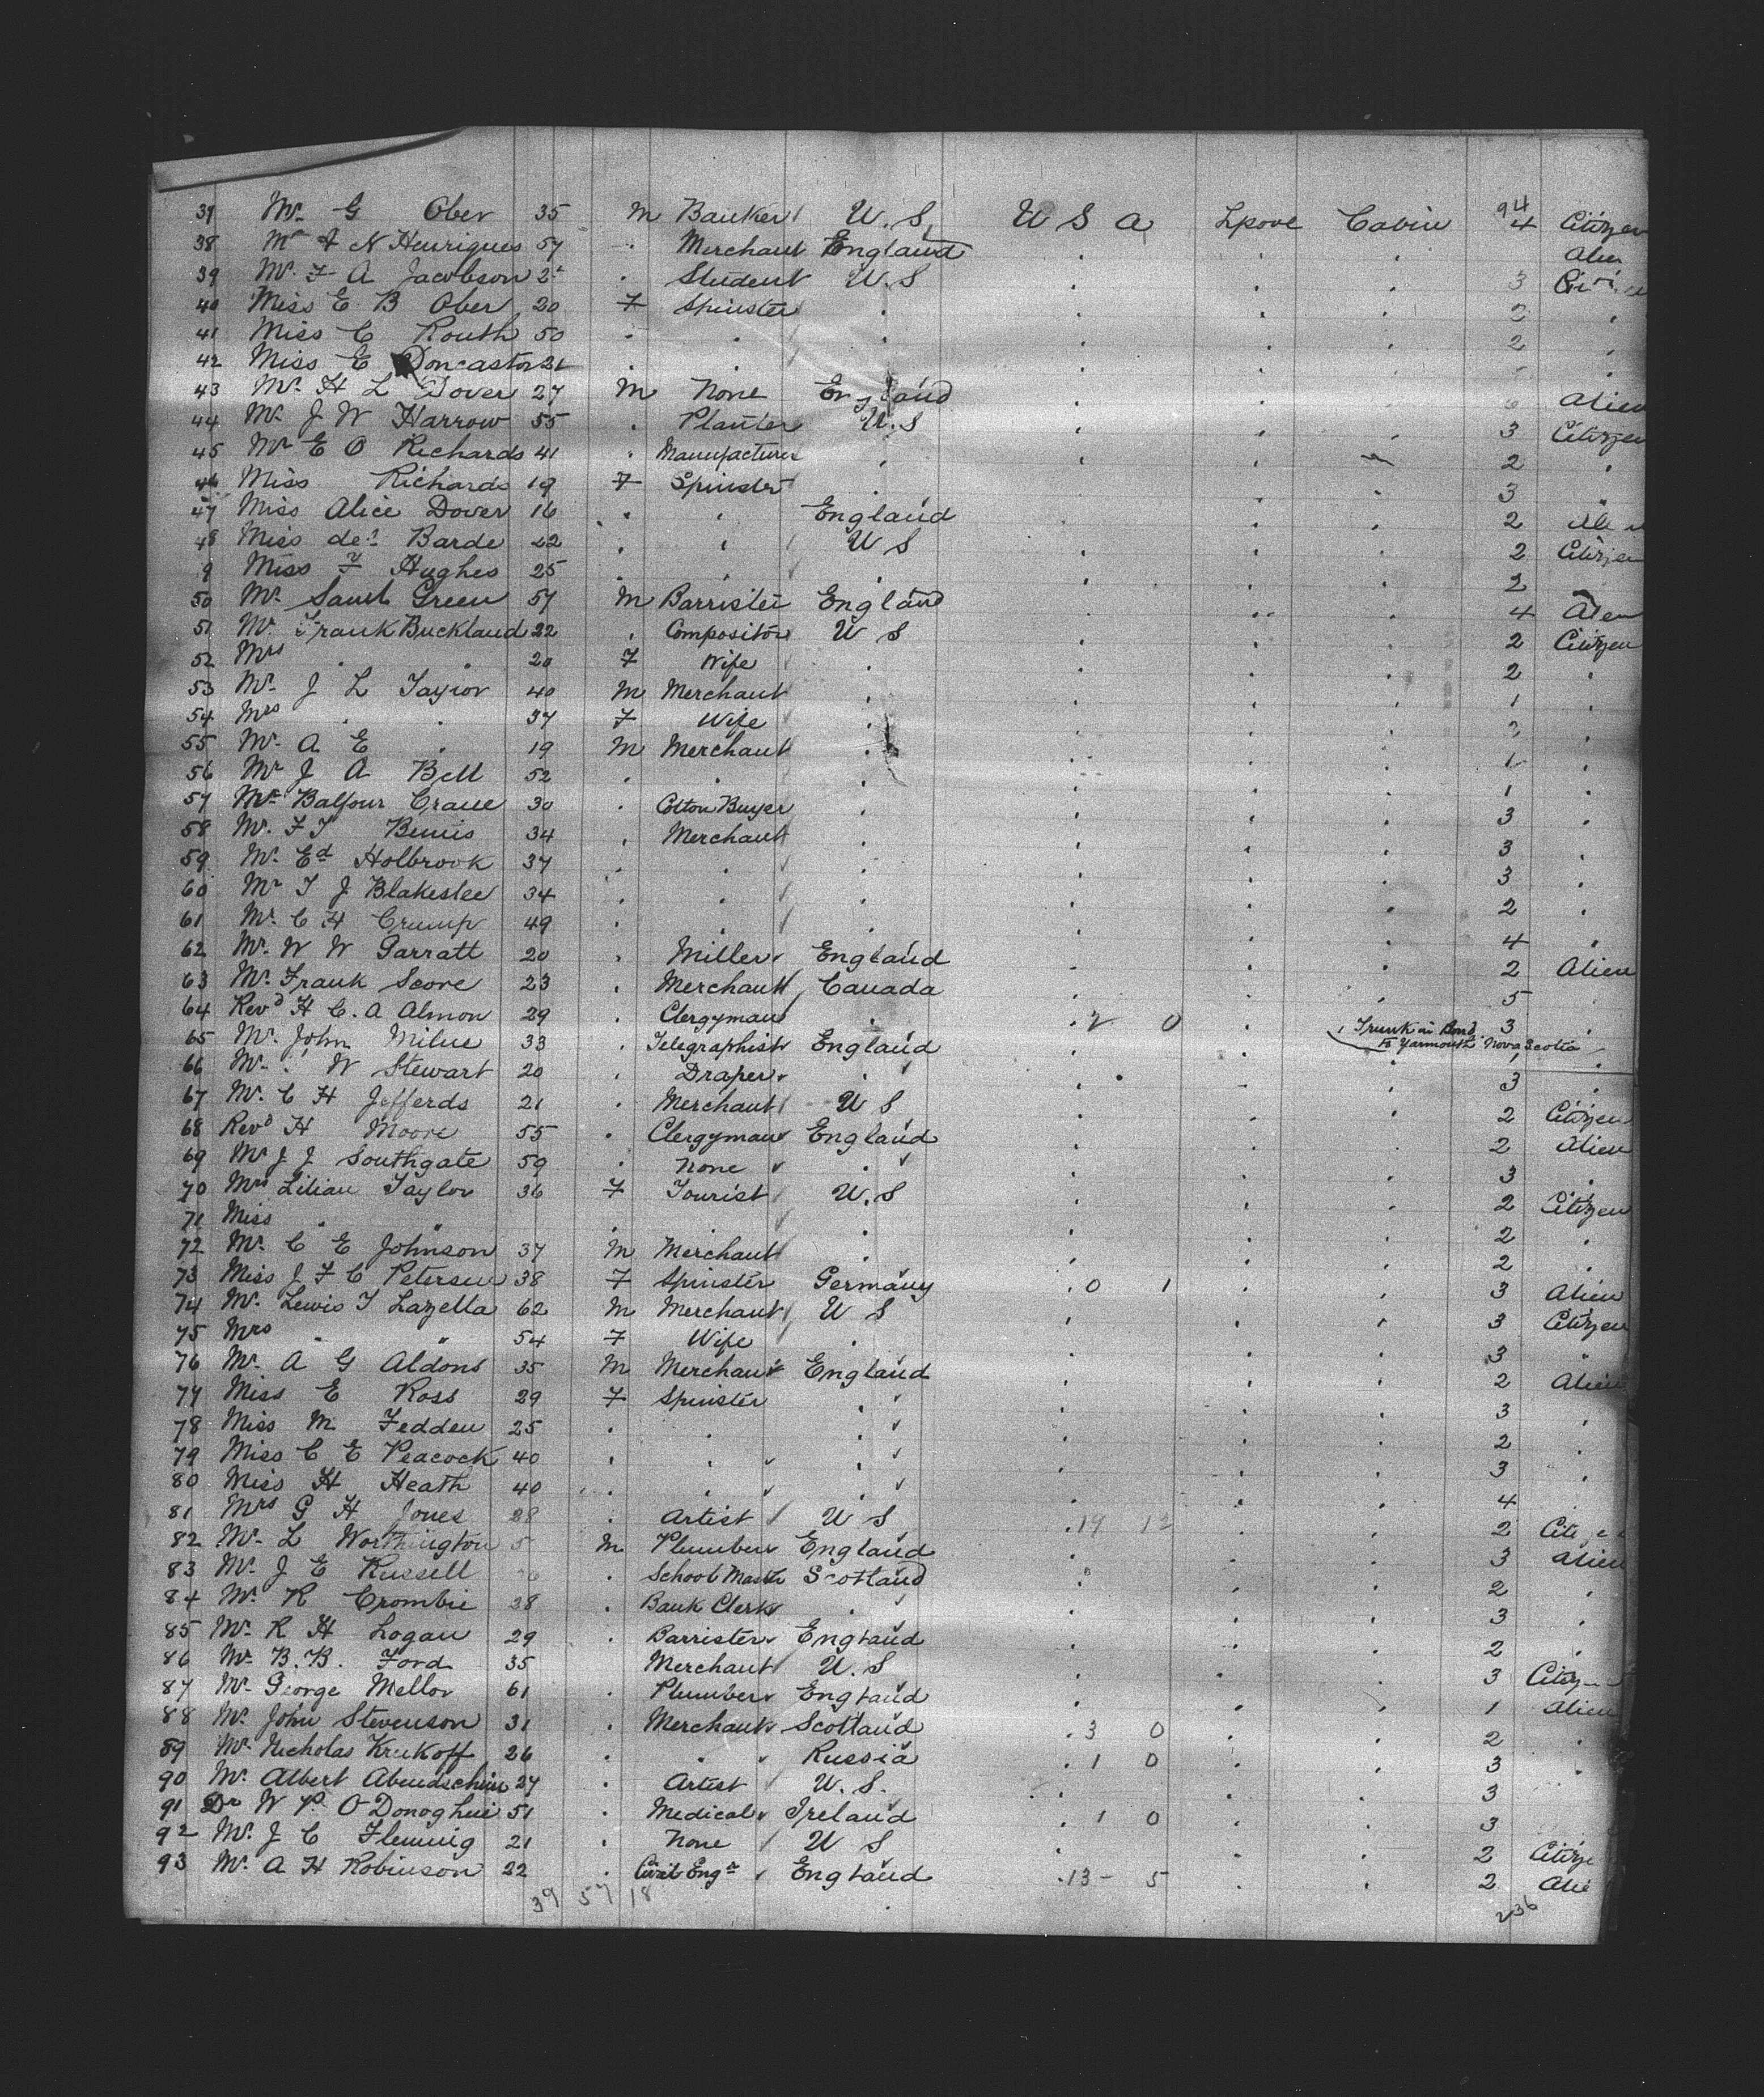 94
39 Mr G Ober 35 M Banker U.S. U S A Lpool Cabin 4 Citizen
38 Mr N Henriques 57 " Merchant England . . . Alien
39 Mr F A Jacobson . Student U.S . . . 3
40 Miss E B Ober 20 F Spinster . . . . 2 .
41 Miss C Routh 50 . . . . . . 2 .
42 Miss E Doncaster 21 . . . . . . .
43 Mr H L Dover 27 M None England . . . Alien
44 Mr J W Harrow 55 . Planter U.S . . . 3 Citizen
45 Mr E O Richards 41 . Manufacturer . . . 2 .
46 Miss Richards 19 F Spinster . . . . 3 "
47 Miss Alice Dover 16 . . England . . . 2
48 Miss Barde 22 . . U S . . . 2 Citizen
9 Miss F Hughes 25 . . . . . . 2
50 Mr Saml Green 57 M Barrister England . . . 4 Alien
51 Mr Frank Buckland 22 . Compositor U S . . . 2 Citizen
52 Mrs . . 20 F Wife . . . . 2 .
53 Mr J L Taylor 40 M Merchant . . . . 1 .
54 Mrs . . 37 F Wife . . . . .
55 Mr A E . 19 M Merchant . . . . 1 .
56 Mr J A Bell 52 . . . . . . 1 .
57 Mr Balfour Crane 30 . Cotton Buyer . . . . 3 .
58 Mr F T Bemis 34 . Merchant . . . . 3 .
59 Mr Ed Holbrook 37 . . . . . . 3 .
60 Mr T J Blakeslee 34 . . . . . . 2 .
61 Mr C H Crump 49 . . . . . . 4 .
62 Mr W W Garratt 20 . Miller England . . . 2 Alien
63 Mr Frank Score 23 . Merchant Canada . . . 5
64 Revd H C. A Almon 29 . Clergyman . . 2 0 . 1 Trunk in Bond to Yarmouth Nova Scotia 3 .
65 Mr John Milne 33 . Telegraphist England . . . .
66 Mr W Stewart 20 . Draper . . . . 3 .
67 Mr C H Jefferds 21 . Merchant U S . . . 2 Citizen
68 Revd H Moore 55 . Clergyman England . . . 2 Alien
69 Mr J J Southgate 59 . None . . . . 3 .
70 Mrs Lilian Taylor 36 F Tourist U.S . . . 2 Citizen
71 Miss " " . . . . . 2 .
72 Mr C E Johnson 37 M Merchant . . . . 2 .
73 Miss J F C Petersen 38 F Spinster Germany . 0 1 . . 3 Alien
74 Mr Lewis T Lazella 62 M Merchant U S . . . 3 Citizen
75 Mrs " " 54 F Wife . . . . 3 "
76 Mr A G Aldons 35 M Merchant England . . . 2 Alien
77 Miss E Ross 29 F Spinster . . . . 3 .
78 Miss M Fedden 25 . . . . . . 2 .
79 Miss C E Peacock 40 . . . . . . 3 .
80 Miss H Heath 40 . . . . . . 4
81 Mrs G H Jones 28 . Artist U S . 19 12 . . 2
82 Mr L Worthington M Plumber England . . . 3 Alien
83 Mr J E Russell . School Master Scotland . . . 2 .
84 Mr R Crombie 28 . Bank Clerk . . . . 3 .
85 Mr R H Logan 29 . Barrister England . . . 2 .
86 Mr B.B. Ford 35 Merchant U.S . . . 3
87 Mr George Mellor 61 . Plumber England . . . 1 Alien
88 Mr John Stevenson 31 . Merchant Scotland . 3 0 . . 2 .
89 Mr Nicholas Krukoff 26 . . Russia . 1 0 . . 3 .
90 Mr Albert Abendschein 27 . Artist U.S. . . . 3
91 Dr W P. O Donoghue 51 . Medical Ireland . 1 0 . . 3
92 Mr J C Fleming 21 . None U S . . . 2 Citize
93 Mr A H Robinson 22 . Civil Engr England . 13 - 5 . . 2 Alie
39 57 18 236